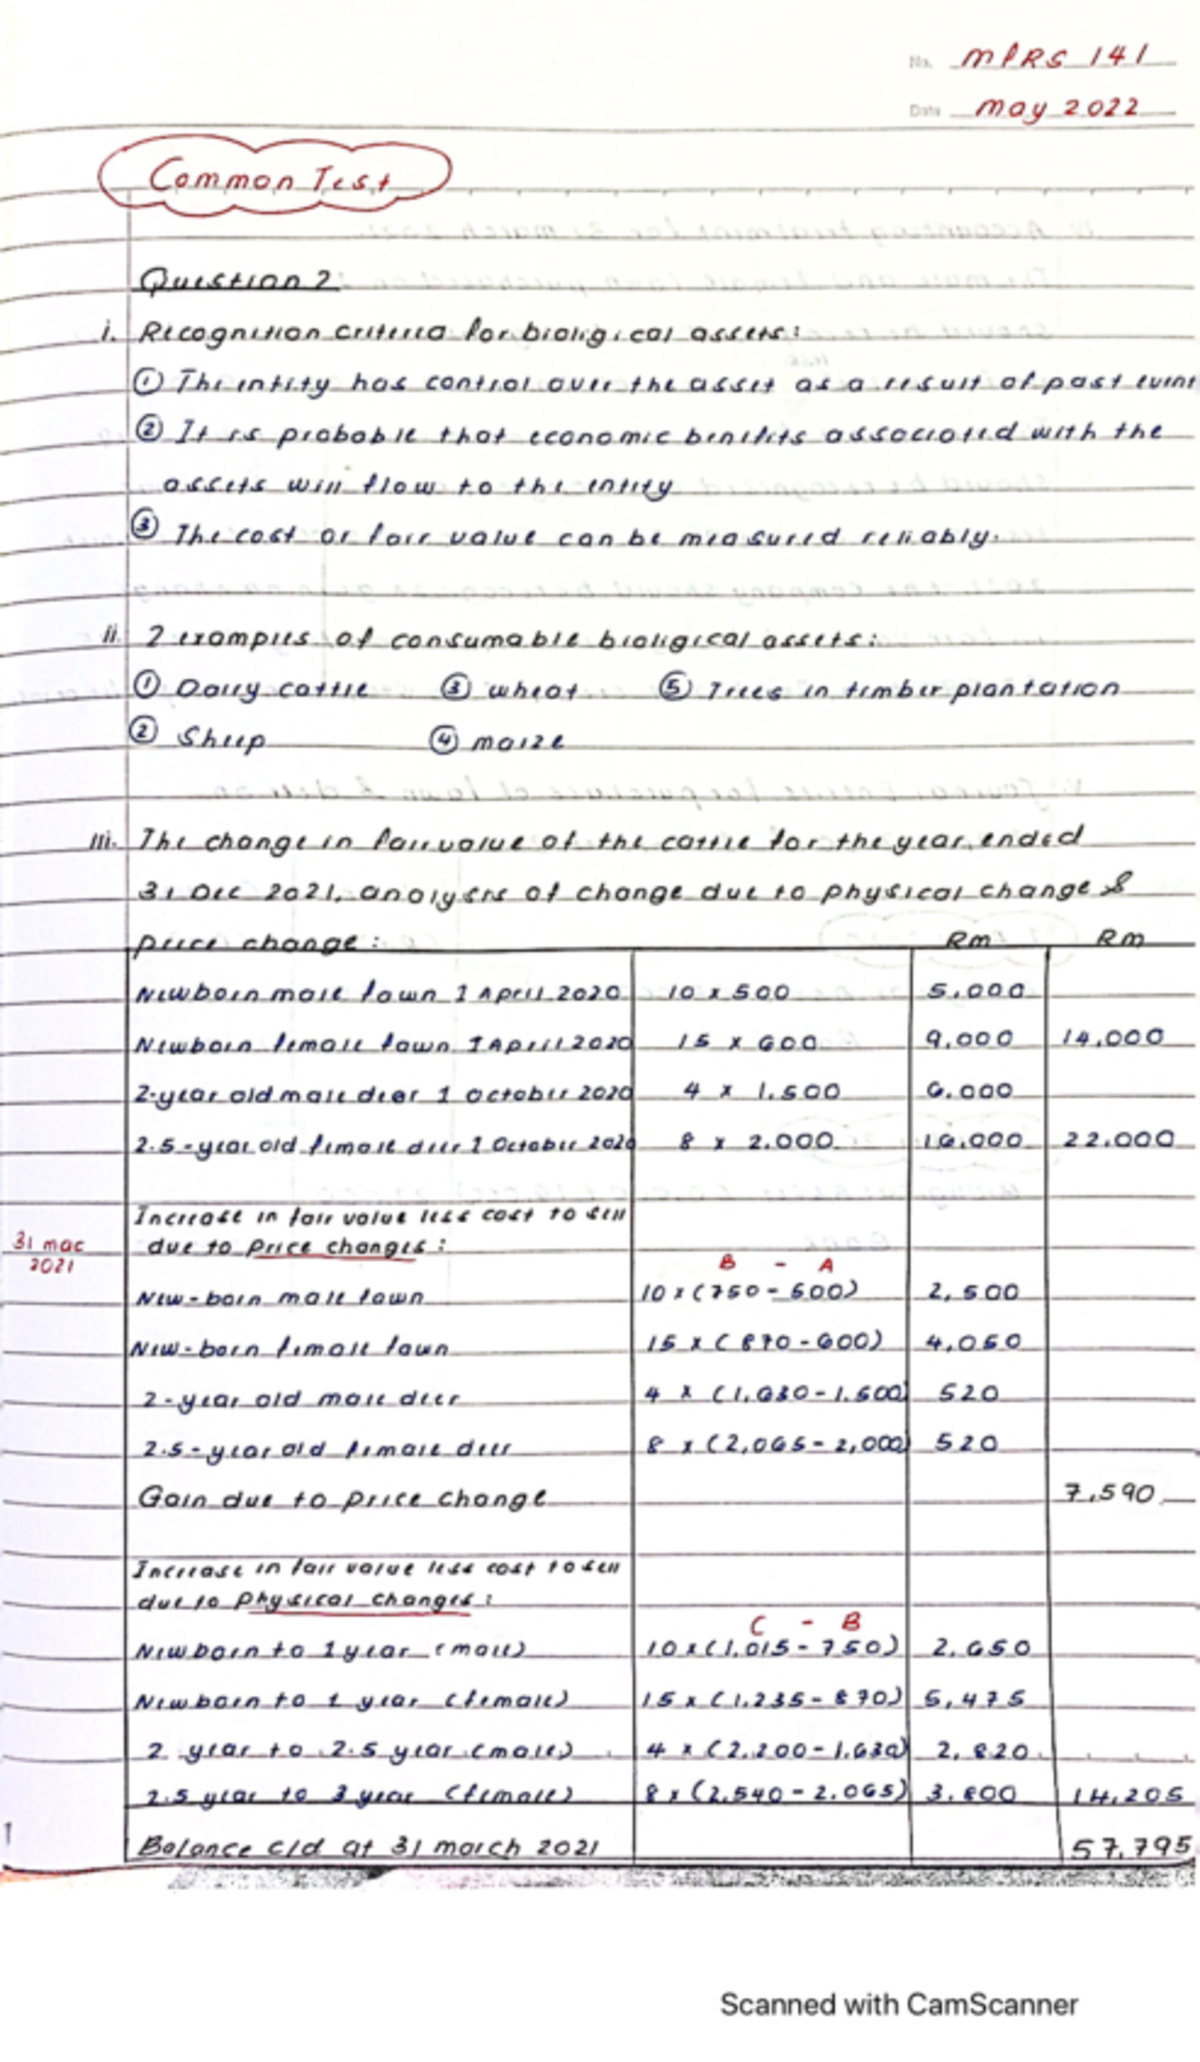 No. MFRS 141
Date May 2022
Common Test
Question 2
i. Recognition criteria for biological assets:
① The entity has control over the asset as a result of past event
② It is probable that economic benefits associated with the
assets will flow to the entity
③ The cost or fair value can be measured reliably.
ii. 2 examples of consumable biological assets:
① Dairy cattle ③ wheat ⑤ Trees in timber plantation
② Sheep ④ maize
iii. The change in fair value of the cattle for the year ended
31 Dec 2021, analysis of change due to physical change &
price change: Rm Rm
Newborn male fawn 1 April 2020 10 x 500 5,000
Newborn female fawn 1 April 2020 15 x 600 9,000 14,000
2-year old male deer 1 October 2020 4 x 1,500 6,000
2.5-year old female deer 1 October 2020 8 x 2,000 16,000 22,000
Increase in fair value less cost to sell
31 mac due to price changes:
2021 B - A
New-born male fawn 10 x (750 - 500) 2,500
New-born female fawn 15 x (870 - 600) 4,050
2-year old male deer 4 x (1,630 - 1,500) 520
2.5-year old female deer 8 x (2,065 - 2,000) 520
Gain due to price change 7,590
Increase in fair value less cost to sell
due to physical changes:
C - B
Newborn to 1 year (male) 10 x (1,015 - 750) 2,650
Newborn to 1 year (female) 15 x (1,235 - 870) 5,475
2 year to 2.5 year (male) 4 x (2,200 - 1,630) 2,820
2.5 year to 3 year (female) 8 x (2,540 - 2,065) 3,800 14,205
Balance c/d at 31 march 2021 57,795
Scanned with CamScanner